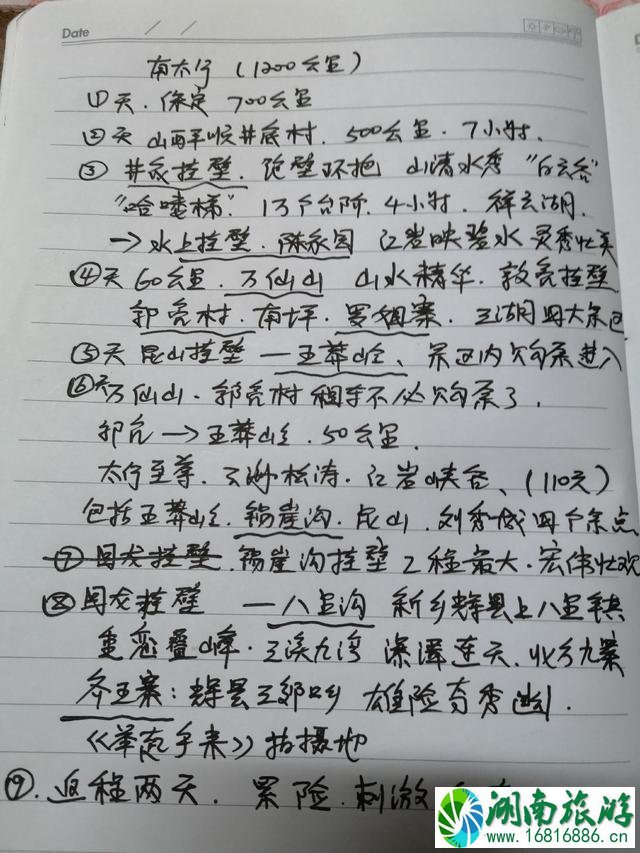 Date
南太行 (1200公里)
①天. 保定 700公里
②天 山西平顺井底村. 500公里. 7小时.
③ 井底挂壁. 绝壁环抱 山清水秀 "白云谷"
"哈喽梯" 1万个台阶. 4小时.
→水上挂壁. 红岩映碧水 灵秀壮美
④天 60公里. 万仙山 山水精华. 郭亮挂壁
郭亮村. 南坪. 罗姐寨. 五湖四大景区
⑤天 昆山挂壁 — 王莽岭、景区内 购票进入
⑥天万仙山. 郭亮村 租车不必购票了.
郭亮→王莽岭. 50公里.
太行至尊. 云海松涛. 红岩峡谷、(110元)
包括王莽岭. 锡崖沟. 昆山. 刘秀城四个景点
⑦ 回龙挂壁. 锡崖沟挂壁 工程最大. 宏伟壮观
⑧回龙挂壁 — 八里沟 新乡辉县上八里镇
重峦叠峰.
齐王寨: 辉县 雄险奇秀幽.
《举起手来》拍摄地
⑨. 返程两天. 累 险. 刺激
湖南旅游
www.16816886.cn